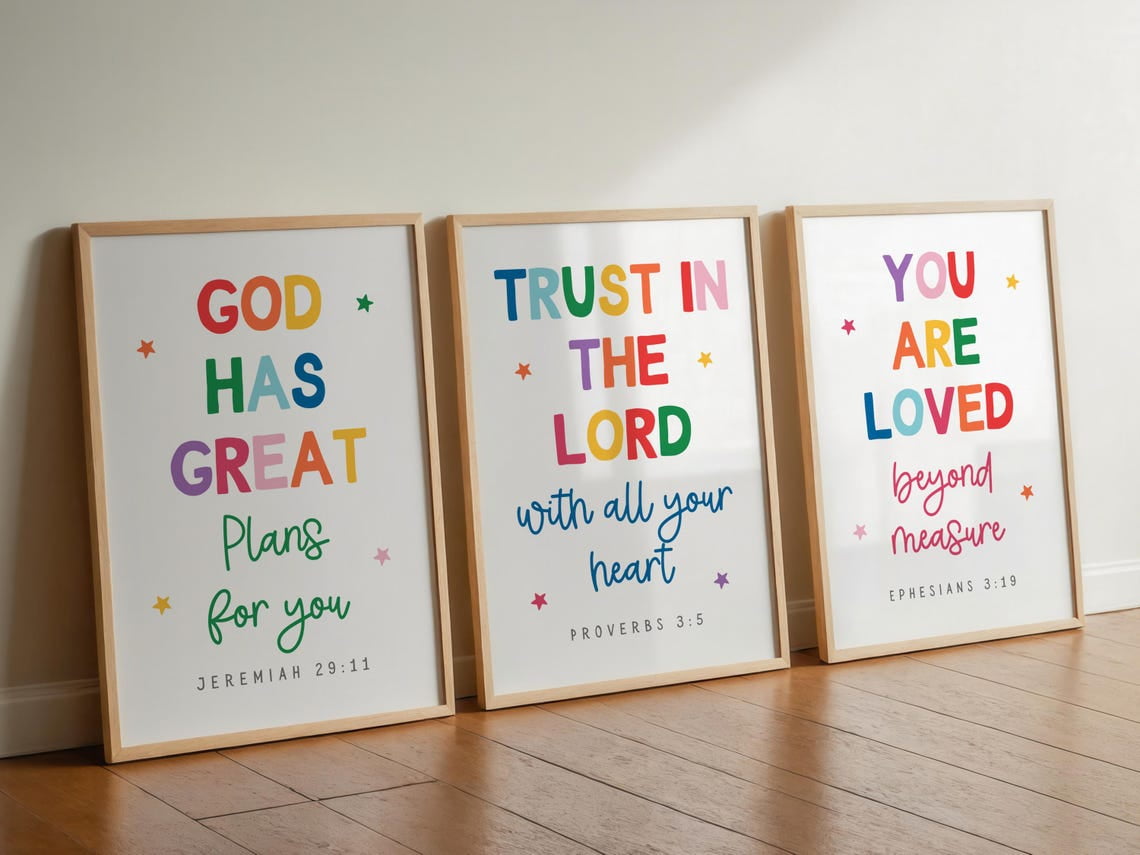 GOD
HAS
GREAT
Plans
for you
JEREMIAH 29:11
TRUST IN
THE
LORD
with all your
heart
PROVERBS 3:5
YOU
ARE
LOVED
beyond
measure
EPHESIANS 3:19